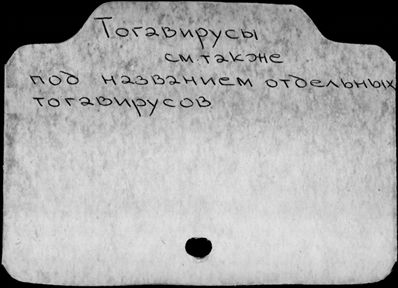 Тогавирусы
см. также
под названием отдельных
тогавирусов